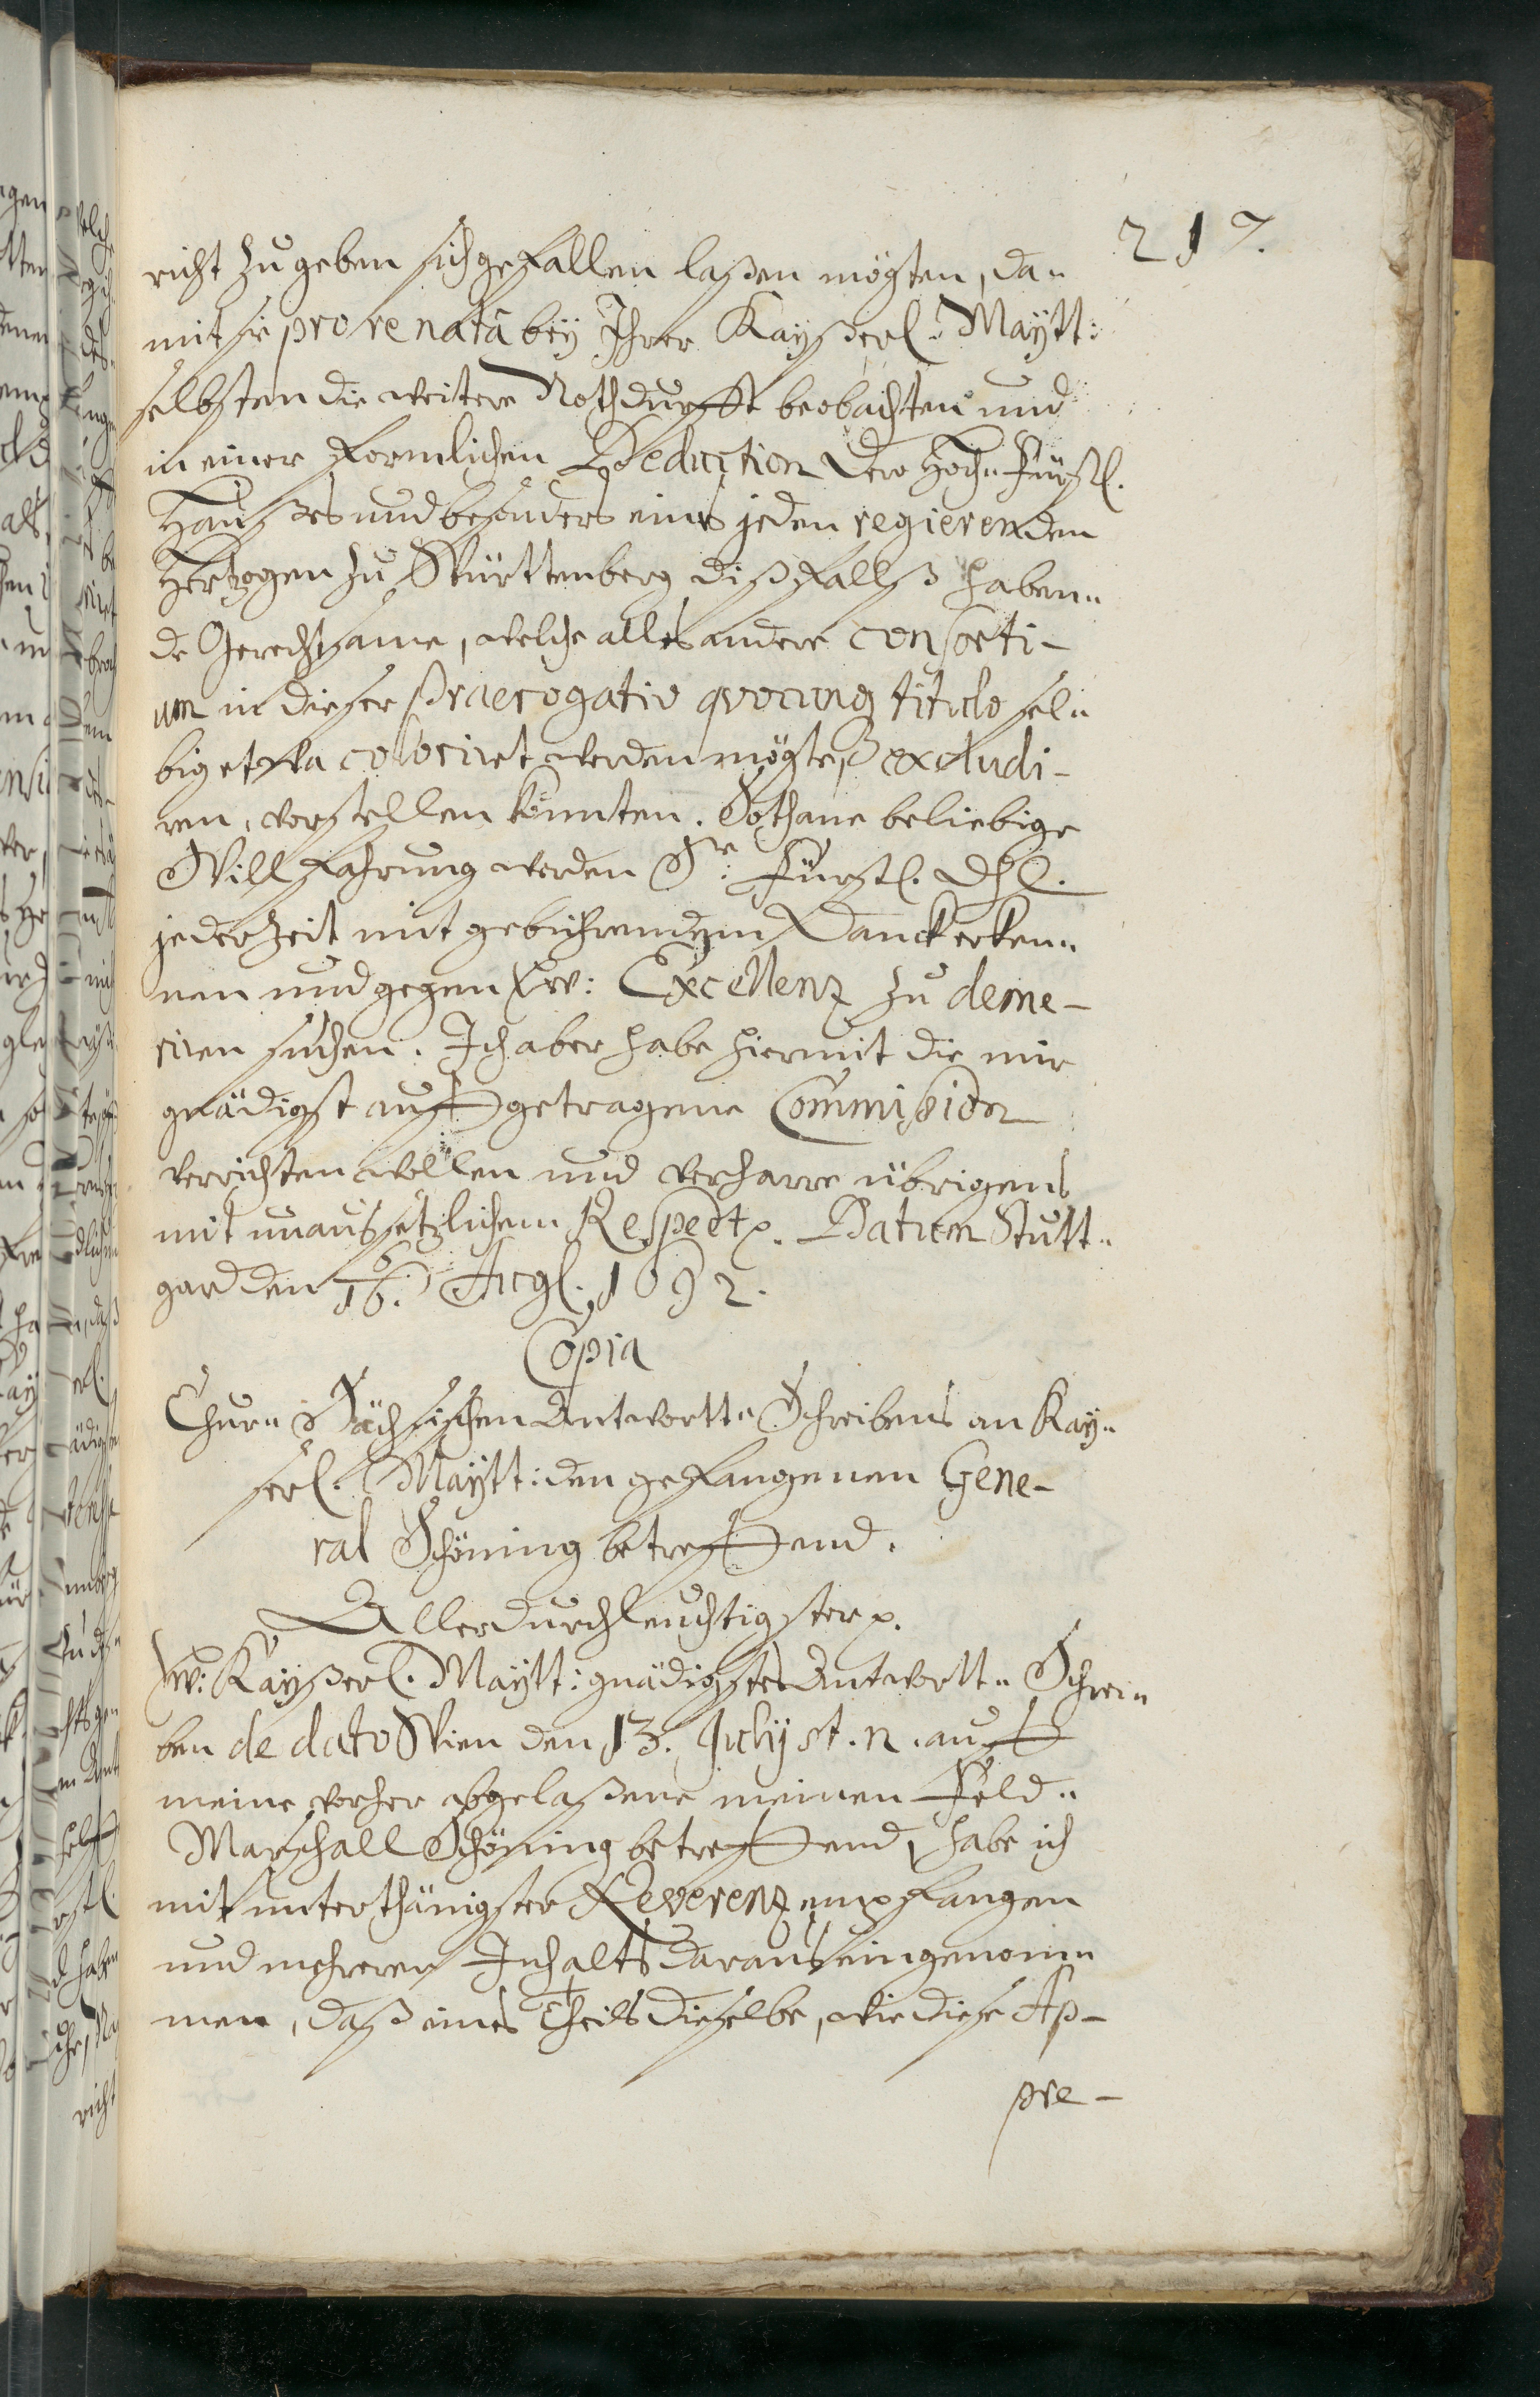 217.
richt zu geben sich gefallen laßen mögten, da-
mit sie pro re natâ bey Ihrer Kayßerl. Maytt:
selbsten die weitere Nothdurfft beobachten und
in einer formlichen Deduction dero Hoch-Fürstl.
Haußes und besonders eines jeden regierenden
Hertzogen zu Württenberg dißfallß haben-
de Gerechtsame, welche alles andere consorti-
um in dieser Praerogativ qvocunq titulo sel-
big etwa coloriret werden mögte, excludi-
ren, vorstellen könnten. Sothane beliebige
Willfahrung werden Sr. Fürstl. Dhl.
jederzeit mit gebührendem Danck erken-
nen und gegen Ew: Excellenz zu deme-
riren suchen. Ich aber habe hiermit die mir
gnädigst auffgetragene Commission
verrichten wollen und verharre übrigens
mit unaussetzlichem Respect p. Datum Stutt-
gard den 6/16. Aug. 1692.
Copia
Chur-Sächsischen Antwortt-Schreibens an Kay-
serl. Maytt: den gefangenen Gene-
ral Schöning betreffend.
Allerdurchleuchtigster p.
Ew: Kayßerl. Maytt: gnädigstes Antwortt-Schrei-
ben de dato Wien den 13. July st. n. auff
meine vorher abgelaßene meinen Feld-
Marschall Schöning betreffend, habe ich
mit unterthänigster Reverenz empfangen
und mehreren Inhalts daraus eingenom-
men, daß eines Theils dieselbe, wie diese Ap-
pre-